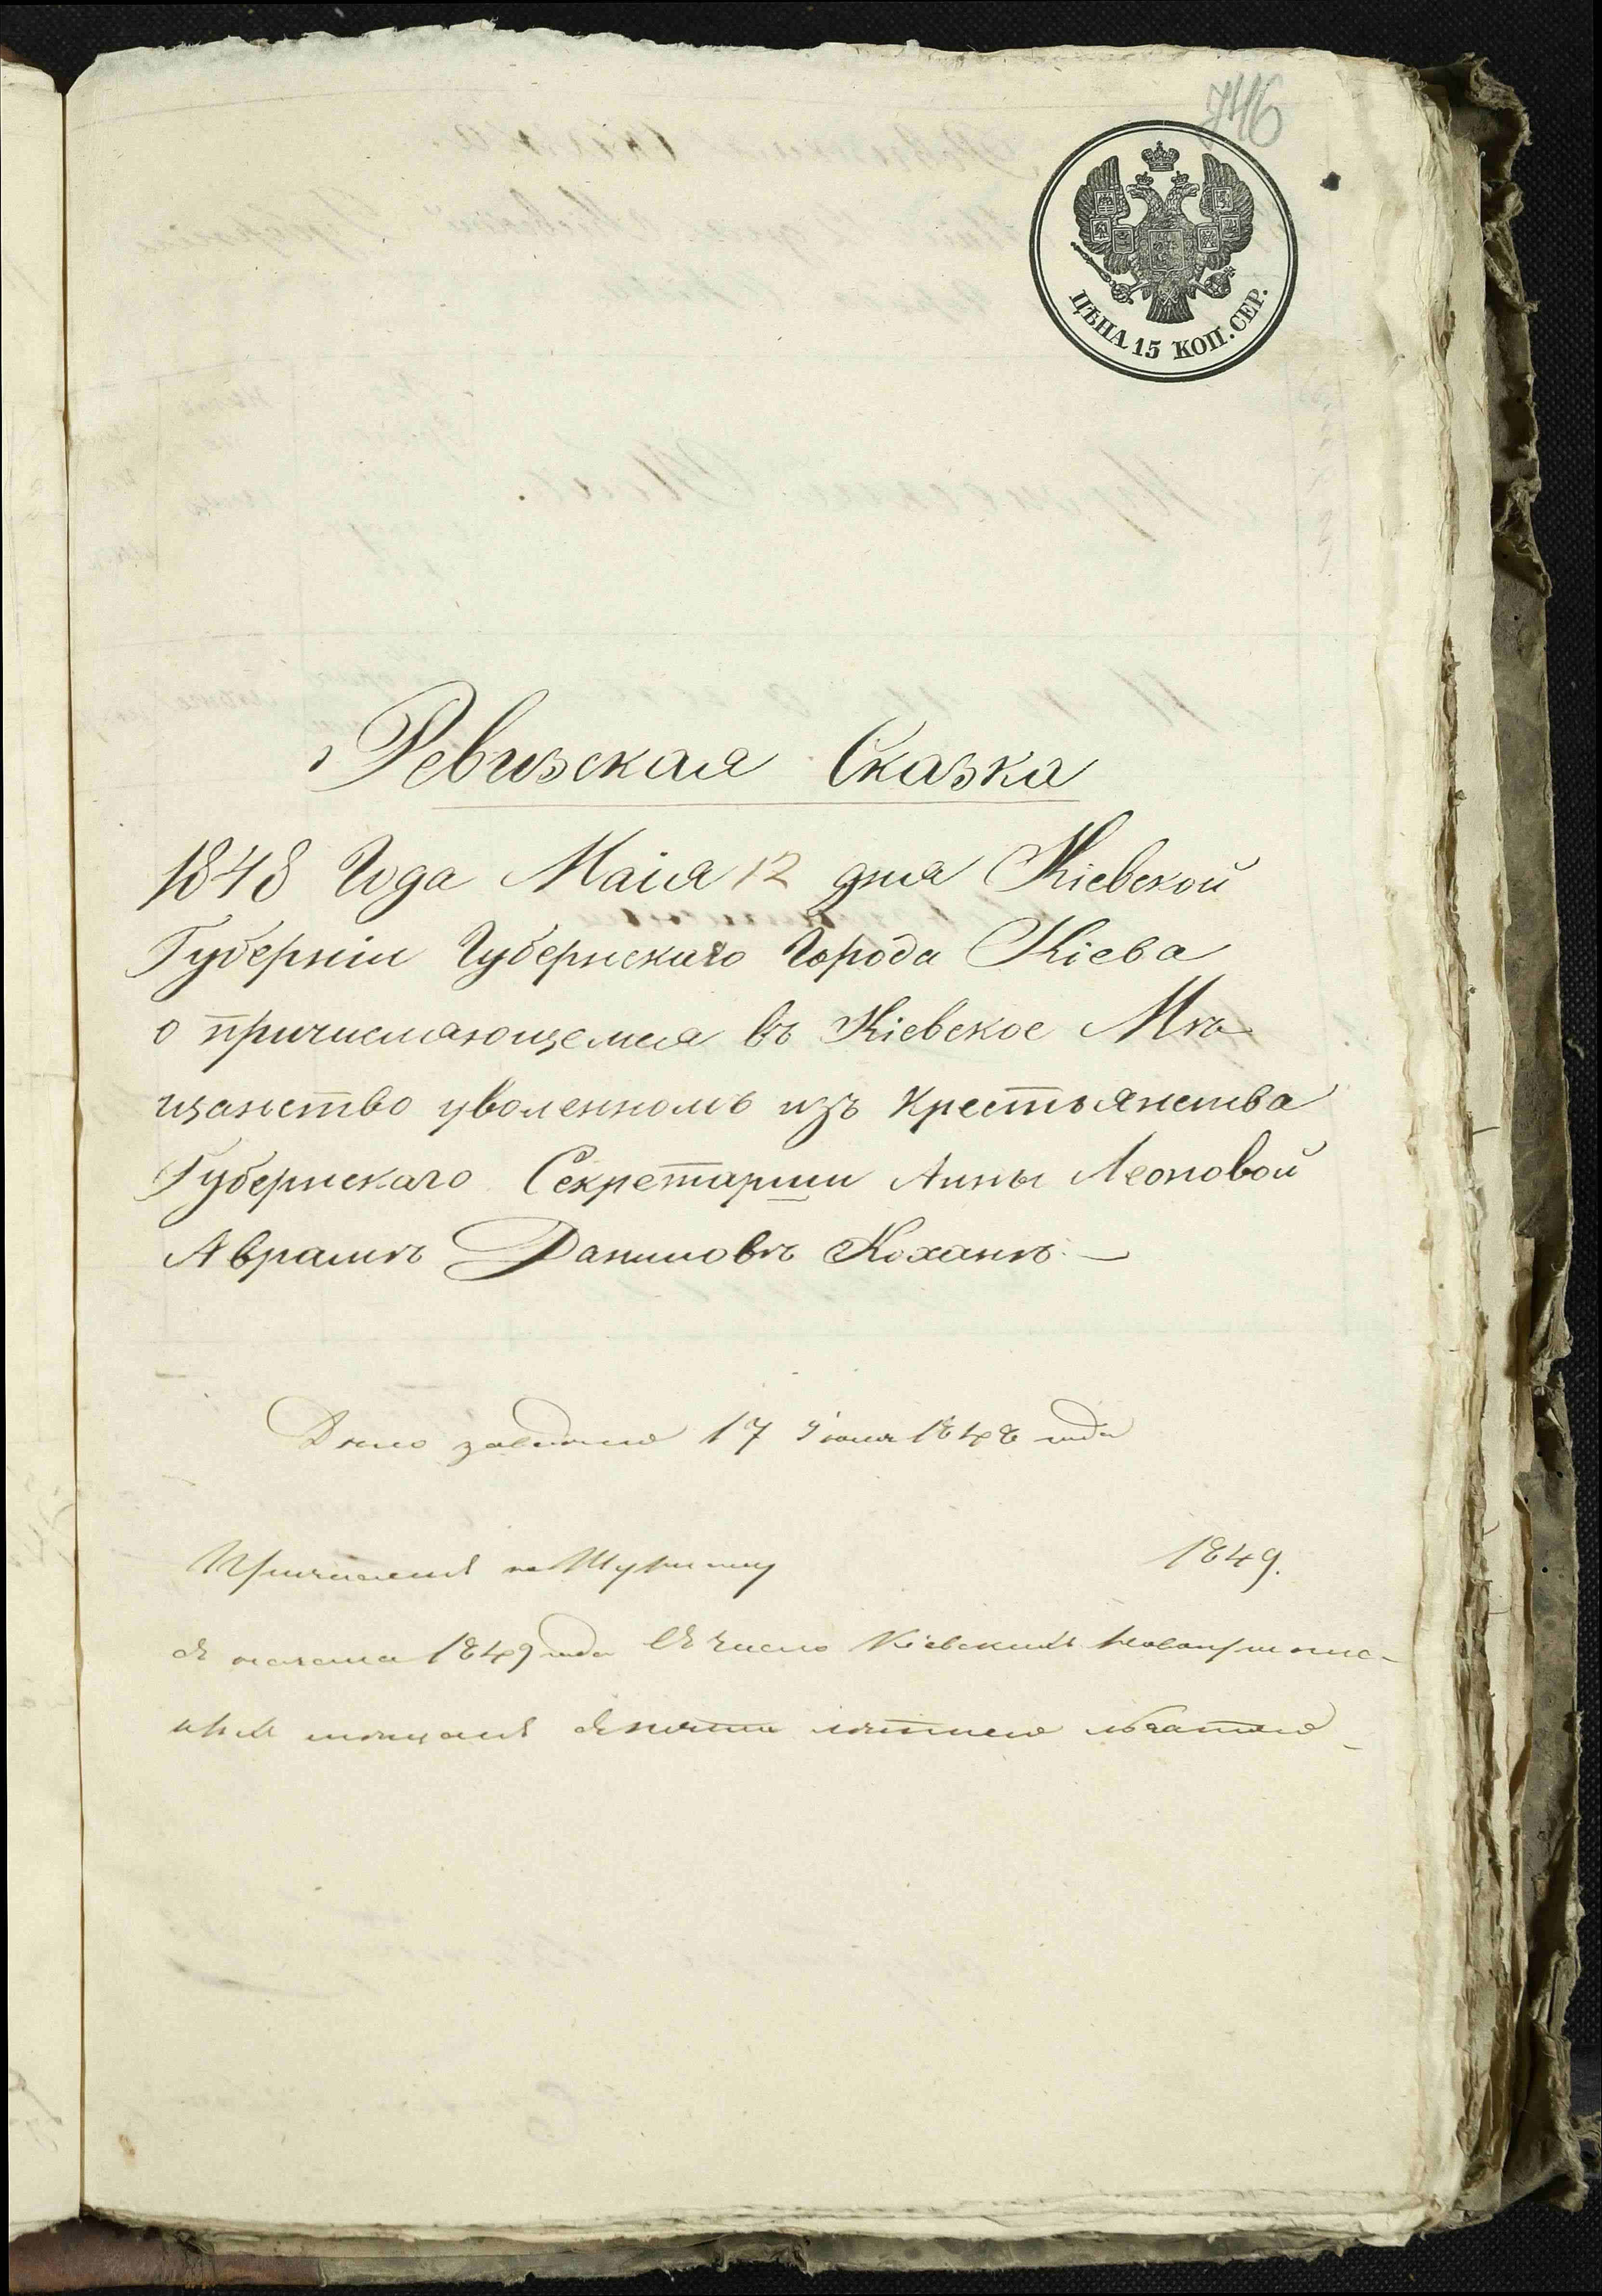 746
ЦѢНА 15 КОП. СЕР.
Ревизская Сказка
1848 Года Маія 12 дня Кіевской
Губерніи Губернскаго Города Кіева
о причисляющемся въ Кіевское Мѣ
щанство уволенномъ изъ крестьянства
Губернскаго Секретарши Анны Леоновой
Аврамѣ Даниловѣ Коханѣ. —
17 Іюня 1848 года
1849.
съ начала 1849 года въ число Кіевскихъ